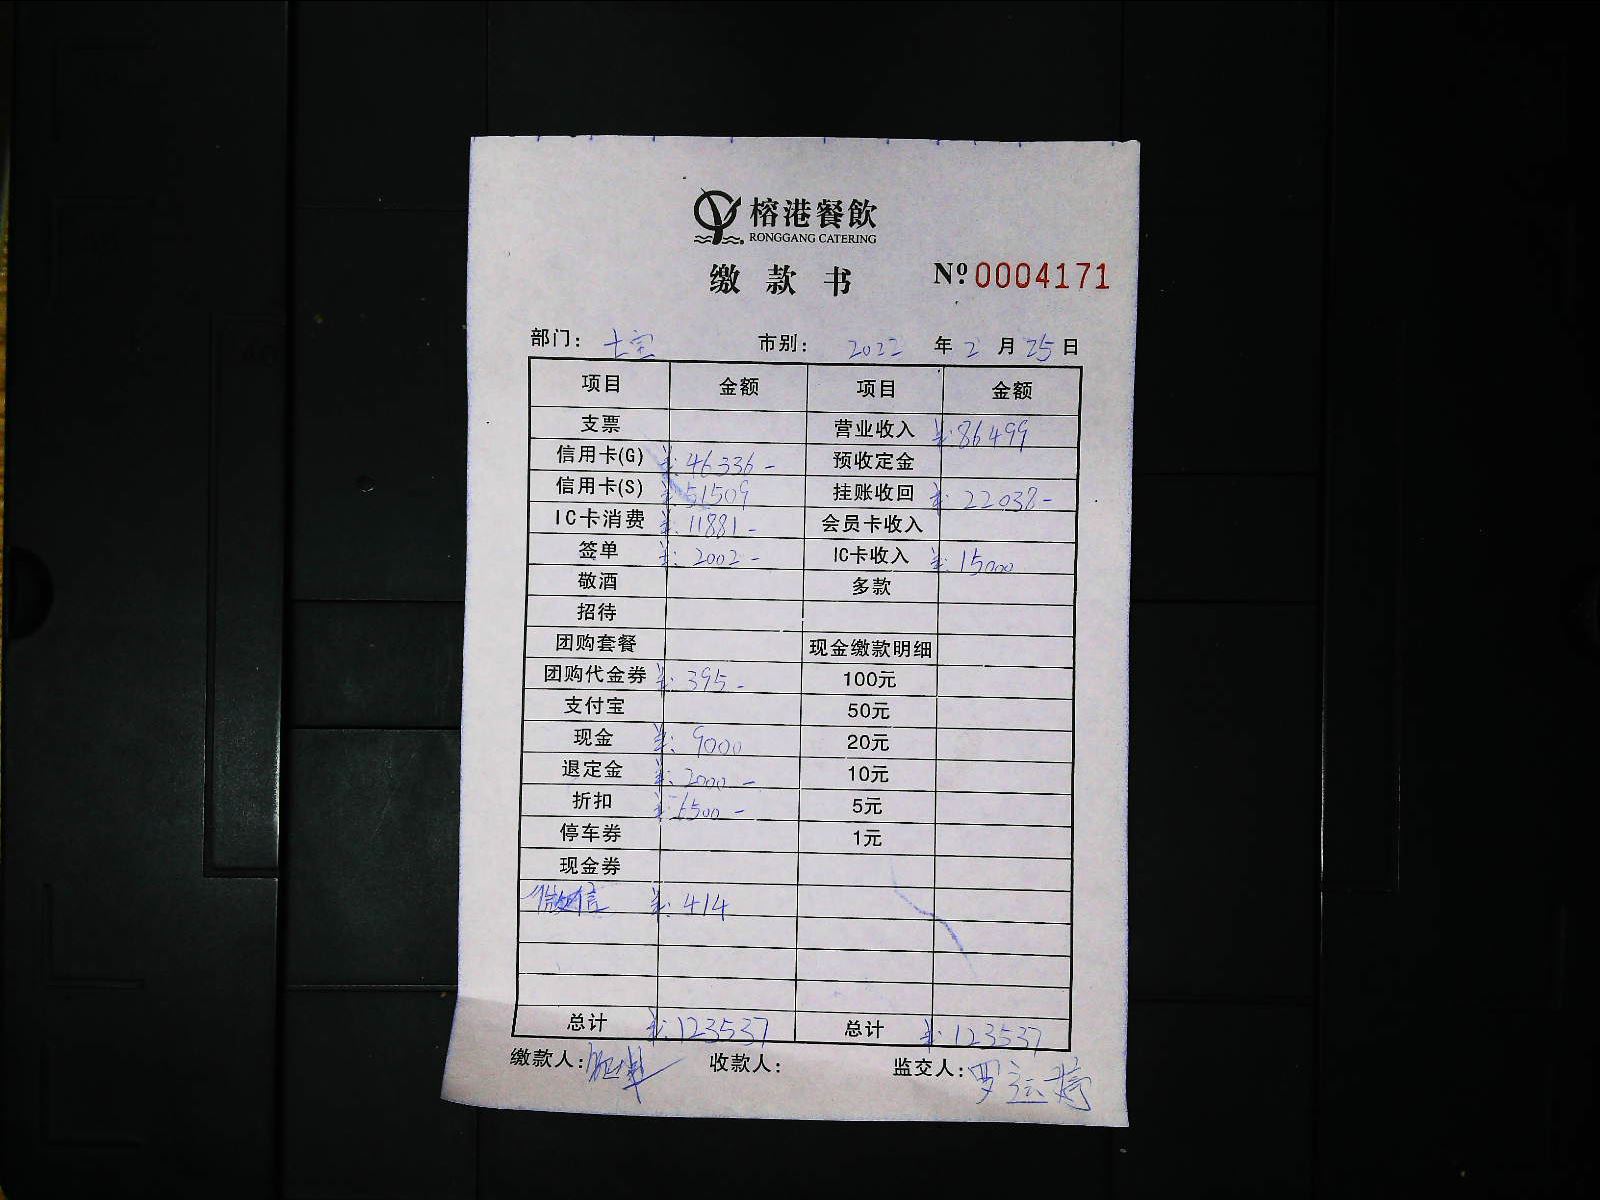 榕港餐飲
RONGGANG CATERING
缴款书 Nº 0004171
部门： 七宝 市别： 2022 年 2 月 25 日
项目 金额 项目 金额
支票 营业收入 ¥:86499
信用卡(G) ¥:46336- 预收定金
信用卡(S) ¥:51509 挂账收回 ¥:22038-
IC卡消费 ¥:11881- 会员卡收入
签单 ¥:2002- IC卡收入 ¥:15000
敬酒 多款
招待
团购套餐 现金缴款明细
团购代金券 ¥:395- 100元
支付宝 50元
现金 ¥:9000 20元
退定金 ¥:2000- 10元
折扣 5元
停车券 1元
现金券
微信 ¥:414
总计 ¥:123537 总计 ¥:123537
缴款人： 收款人： 监交人：罗